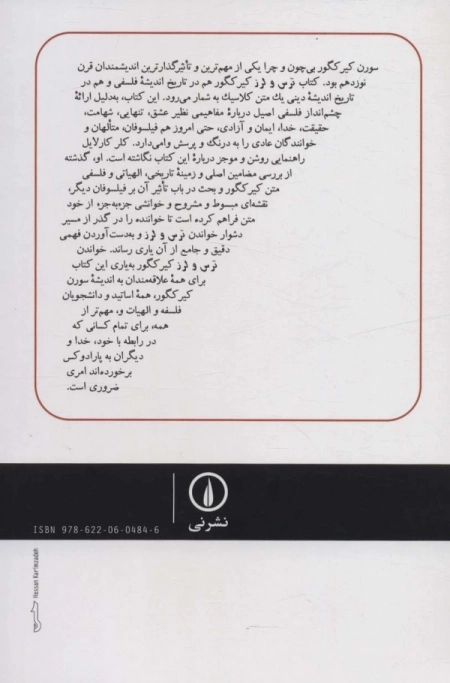 سورن کیرکگور بی‌چون و چرا یکی از مهم‌ترین و تأثیرگذارترین اندیشمندان قرن
نوزدهم بود. کتاب ترس و لرز کیرکگور هم در تاریخ اندیشهٔ فلسفی و هم در
تاریخ اندیشهٔ دینی یك متن کلاسیك به شمار می‌رود. این کتاب، به‌دلیل ارائهٔ
چشم‌انداز فلسفی اصیل دربارهٔ مفاهیمی نظیر عشق، تنهایی، شهامت،
حقیقت، خدا، ایمان و آزادی، حتی امروز هم فیلسوفان، متألهان و
خوانندگان عادی را به درنگ و پرسش وامی‌دارد. کلر کارلایل
راهنمایی روشن و موجز دربارهٔ این کتاب نگاشته است. او، گذشته
از بررسی مضامین اصلی و زمینهٔ تاریخی، الهیاتی و فلسفی
متن کیرکگور و بحث در باب تأثیر آن بر فیلسوفان دیگر،
نقشه‌ای مبسوط و مشروح و خوانشی جزءبه‌جزء از خود
متن فراهم کرده است تا خواننده را در گذر از مسیر
دشوار خواندن ترس و لرز و به‌دست‌آوردن فهمی
دقیق و جامع از آن یاری رساند. خواندن
ترس و لرز کیرکگور به‌یاری این کتاب
برای همهٔ علاقه‌مندان به اندیشهٔ سورن
کیرکگور، همهٔ اساتید و دانشجویان
فلسفه و الهیات و، مهم‌تر از
همه، برای تمام کسانی که
در رابطه با خود، خدا و
دیگران به پارادوکس
برخورده‌اند امری
ضروری است.
نشرنی
ISBN 978-622-06-0484-6
Hessan Karimzadeh